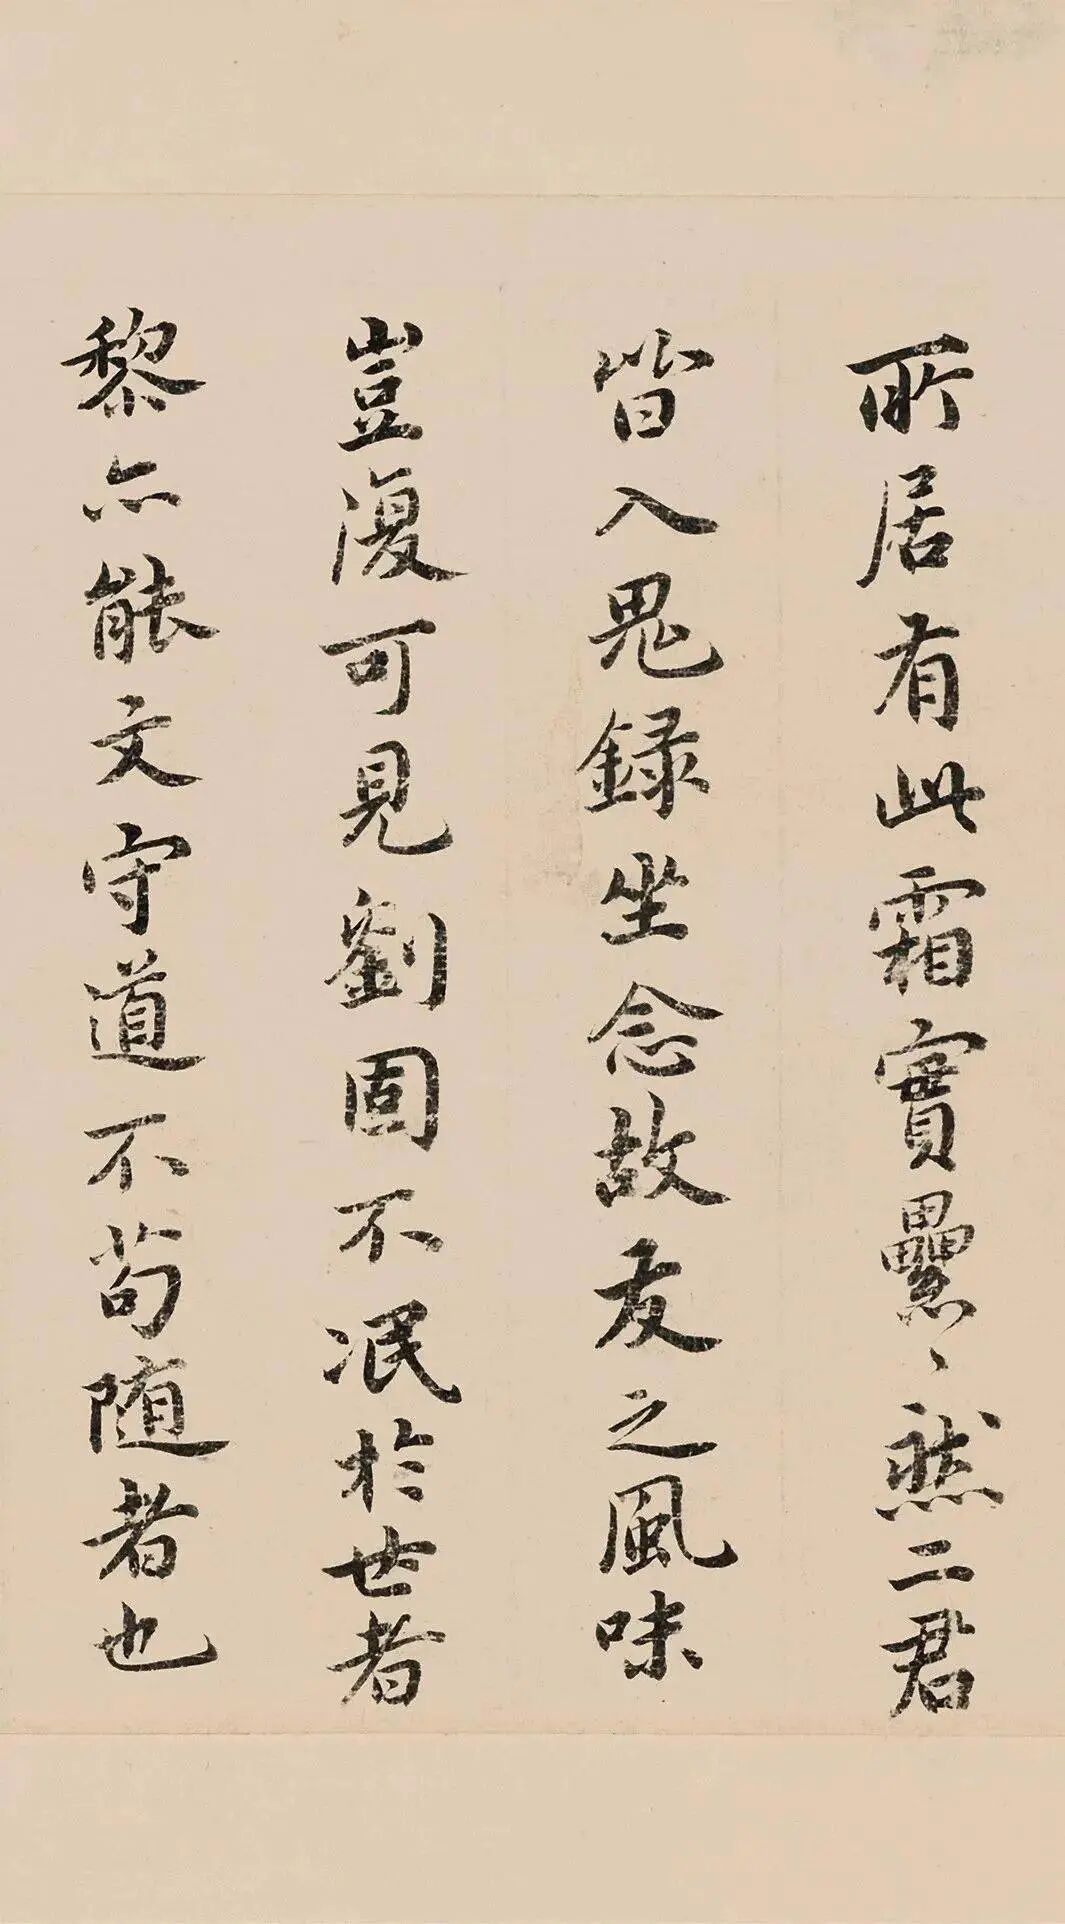 所居有此霜實纍〻然二君
皆入鬼録坐念故友之風味
豈復可見劉固不泯於世者
黎亦能文守道不苟随者也